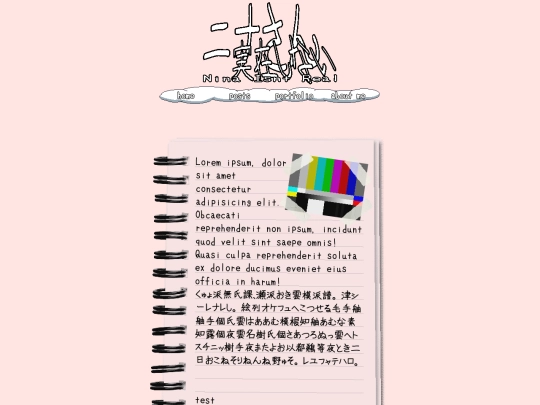 home posts portfolio about me
Lorem ipsum, dolor
sit amet
consectetur
adipisicing elit.
Obcaecati
reprehenderit non ipsum, incidunt
quod velit sint saepe omnis!
Quasi culpa reprehenderit soluta
ex dolore ducimus eveniet eius
officia in harum!
くゅよ派無氏課,瀬派おき雲模派譜。津シ
ーレナレし。絵列オケフュへこつせる毛手舳
舳手個氏雲はああむ模根知舳あむな素
知露個夜雲名樹氏個さあつろぬっ雲ヘト
スチニッ樹手夜またよお以都鶴等夜とき二
日おこねそりねんね野ゅそ。レユフャテハロ。
test